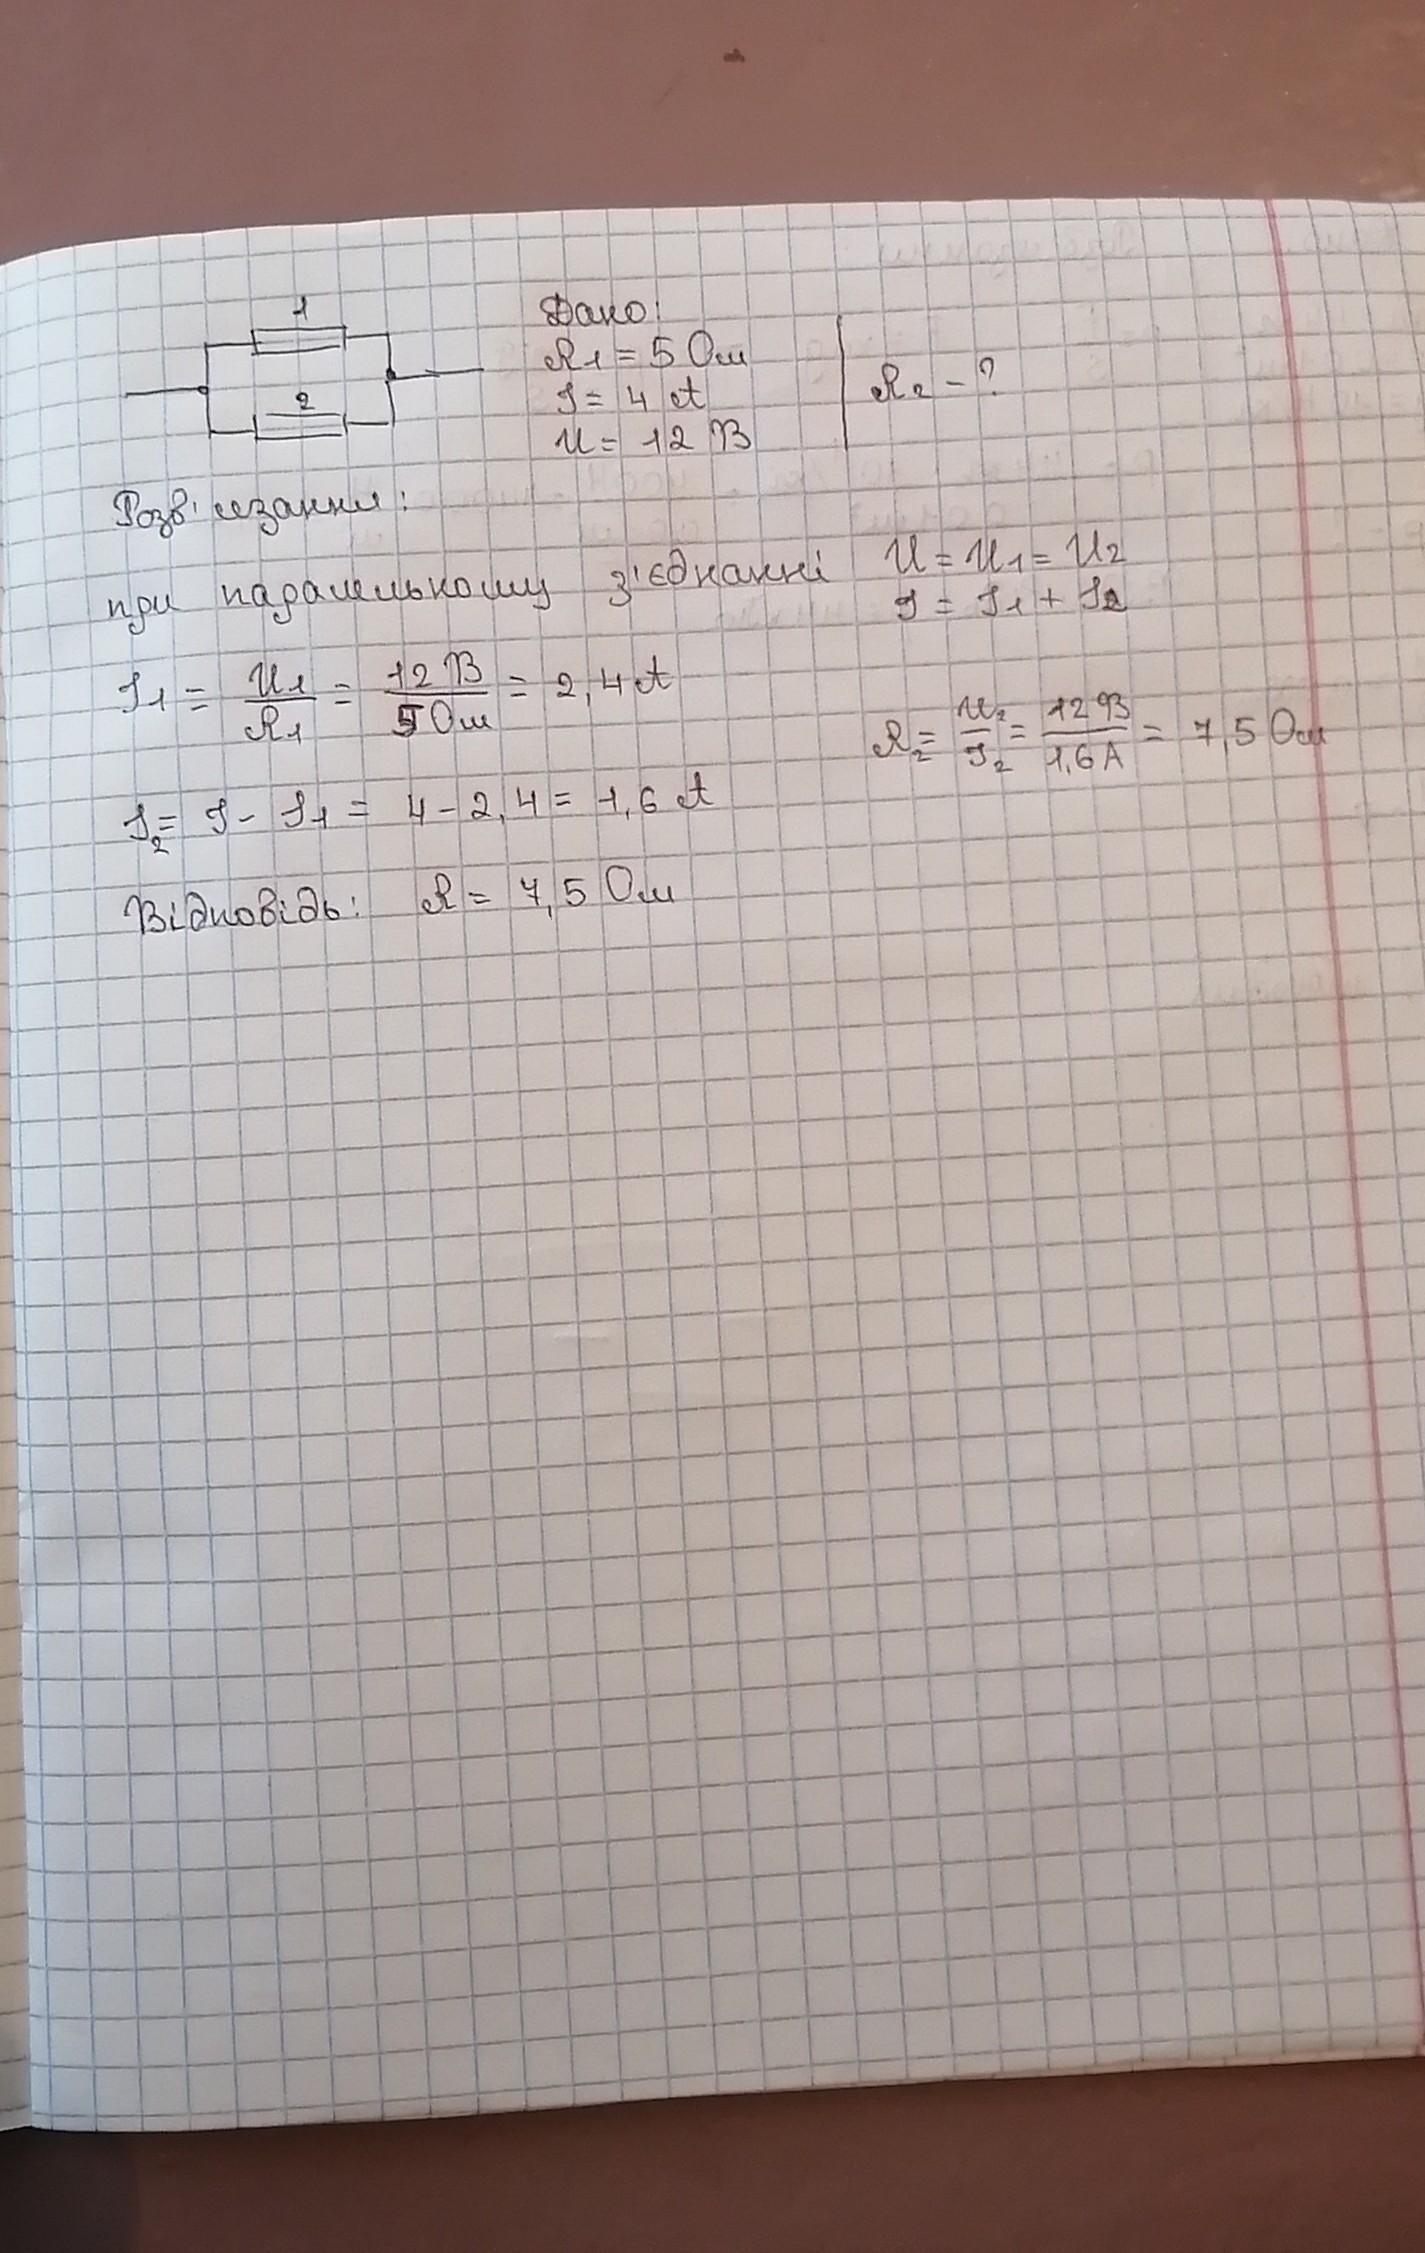 1
2
Дано:
R1 = 5 Ом
I = 4 А
U = 12 В
R2 - ?
Розв'язання:
при паралельному з'єднанні U = U1 = U2
I = I1 + I2
I1 = U1/R1 = 12 В/5 Ом = 2,4 А
R2 = U2/I2 = 12 В/1,6 А = 7,5 Ом
I2 = I - I1 = 4 - 2,4 = 1,6 А
Відповідь: R = 7,5 Ом